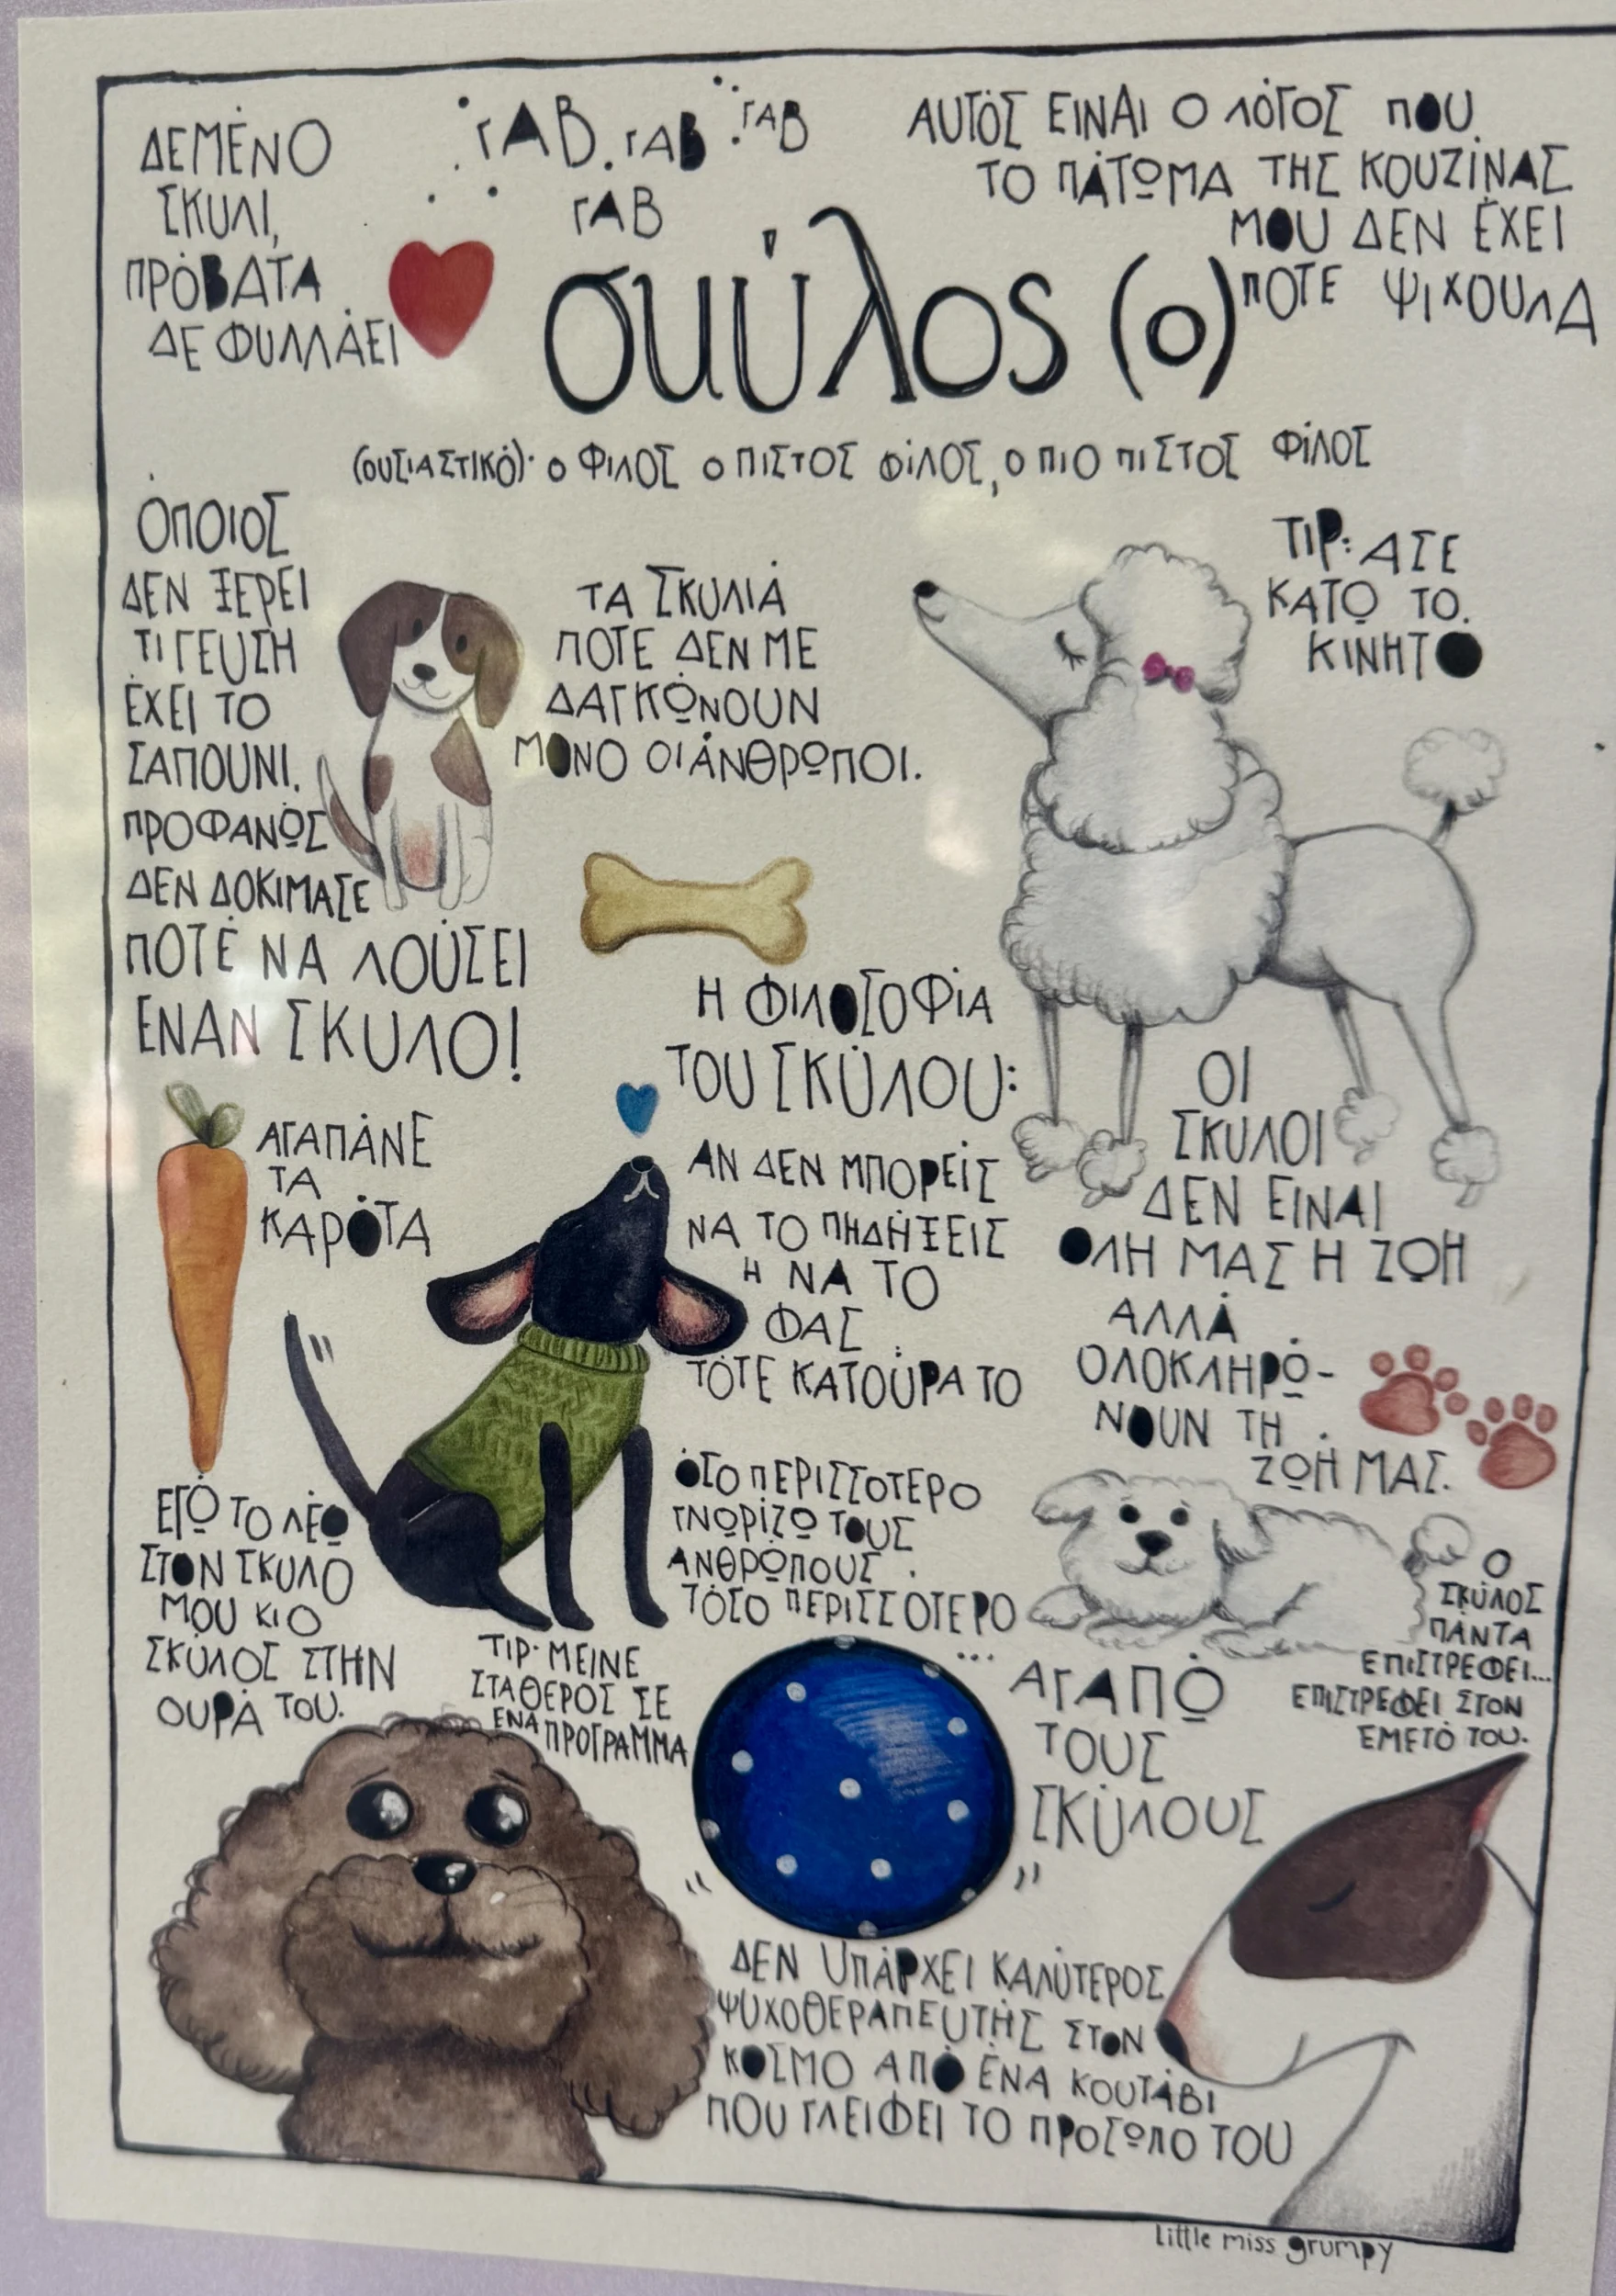 ΔΕΜΕΝΟ
ΣΚΥΛΙ,
ΠΡΟΒΑΤΑ
ΔΕ ΦΥΛΛΑΕΙ
ΓΑΒ. ΓΑΒ ΓΑΒ
ΓΑΒ
ΑΥΤΟΣ ΕΙΝΑΙ Ο ΛΟΓΟΣ ΠΟΥ
ΤΟ ΠΑΤΩΜΑ ΤΗΣ ΚΟΥΖΙΝΑΣ
ΜΟΥ ΔΕΝ ΕΧΕΙ
ΠΟΤΕ ΨΙΧΟΥΛΑ
σκύλος (ο)
(ουσιαστικό)· ο ΦΙΛΟΣ ο ΠΙΣΤΟΣ ΦΙΛΟΣ, ο ΠΙΟ ΠΙΣΤΟΣ ΦΙΛΟΣ
ΟΠΟΙΟΣ
ΔΕΝ ΞΕΡΕΙ
ΤΙ ΓΕΥΣΗ
ΕΧΕΙ ΤΟ
ΣΑΠΟΥΝΙ.
ΠΡΟΦΑΝΩΣ
ΔΕΝ ΔΟΚΙΜΑΣΕ
ΠΟΤΕ ΝΑ ΛΟΥΣΕΙ
ΕΝΑΝ ΣΚΥΛΟ!
ΤΑ ΣΚΥΛΙΑ
ΠΟΤΕ ΔΕΝ ΜΕ
ΔΑΓΚΩΝΟΥΝ
ΜΟΝΟ ΟΙ ΑΝΘΡΩΠΟΙ.
TIP: ΑΣΕ
ΚΑΤΩ ΤΟ
ΚΙΝΗΤΟ
Η ΦΙΛΟΣΟΦΙΑ
ΤΟΥ ΣΚΥΛΟΥ:
ΑΝ ΔΕΝ ΜΠΟΡΕΙΣ
ΝΑ ΤΟ ΠΗΔΗΞΕΙΣ
Η ΝΑ ΤΟ
ΦΑΣ
ΤΟΤΕ ΚΑΤΟΥΡΑ ΤΟ
ΑΓΑΠΑΝΕ
ΤΑ
ΚΑΡΟΤΑ
ΟΙ
ΣΚΥΛΟΙ
ΔΕΝ ΕΙΝΑΙ
ΟΛΗ ΜΑΣ Η ΖΩΗ
ΑΛΛΑ
ΟΛΟΚΛΗΡΩ-
ΝΟΥΝ ΤΗ
ΖΩΗ ΜΑΣ.
ΕΓΩ ΤΟ ΛΕΩ
ΣΤΟΝ ΣΚΥΛΟ
ΜΟΥ ΚΙ Ο
ΣΚΥΛΟΣ ΣΤΗΝ
ΟΥΡΑ ΤΟΥ.
ΟΣΟ ΠΕΡΙΣΣΟΤΕΡΟ
ΓΝΩΡΙΖΩ ΤΟΥΣ
ΑΝΘΡΩΠΟΥΣ
ΤΟΣΟ ΠΕΡΙΣΣΟΤΕΡΟ
... ΑΓΑΠΩ
ΤΟΥΣ
ΣΚΥΛΟΥΣ
Ο
ΣΚΥΛΟΣ
ΠΑΝΤΑ
ΕΠΙΣΤΡΕΦΕΙ...
ΕΠΙΣΤΡΕΦΕΙ ΣΤΟΝ
ΕΜΕΤΟ ΤΟΥ.
TIP· ΜΕΙΝΕ
ΣΤΑΘΕΡΟΣ ΣΕ
ΕΝΑ ΠΡΟΓΡΑΜΜΑ
ΔΕΝ ΥΠΑΡΧΕΙ ΚΑΛΥΤΕΡΟΣ
ΨΥΧΟΘΕΡΑΠΕΥΤΗΣ ΣΤΟΝ
ΚΟΣΜΟ ΑΠΟ ΕΝΑ ΚΟΥΤΑΒΙ
ΠΟΥ ΓΛΕΙΦΕΙ ΤΟ ΠΡΟΣΩΠΟ ΤΟΥ
little miss grumpy